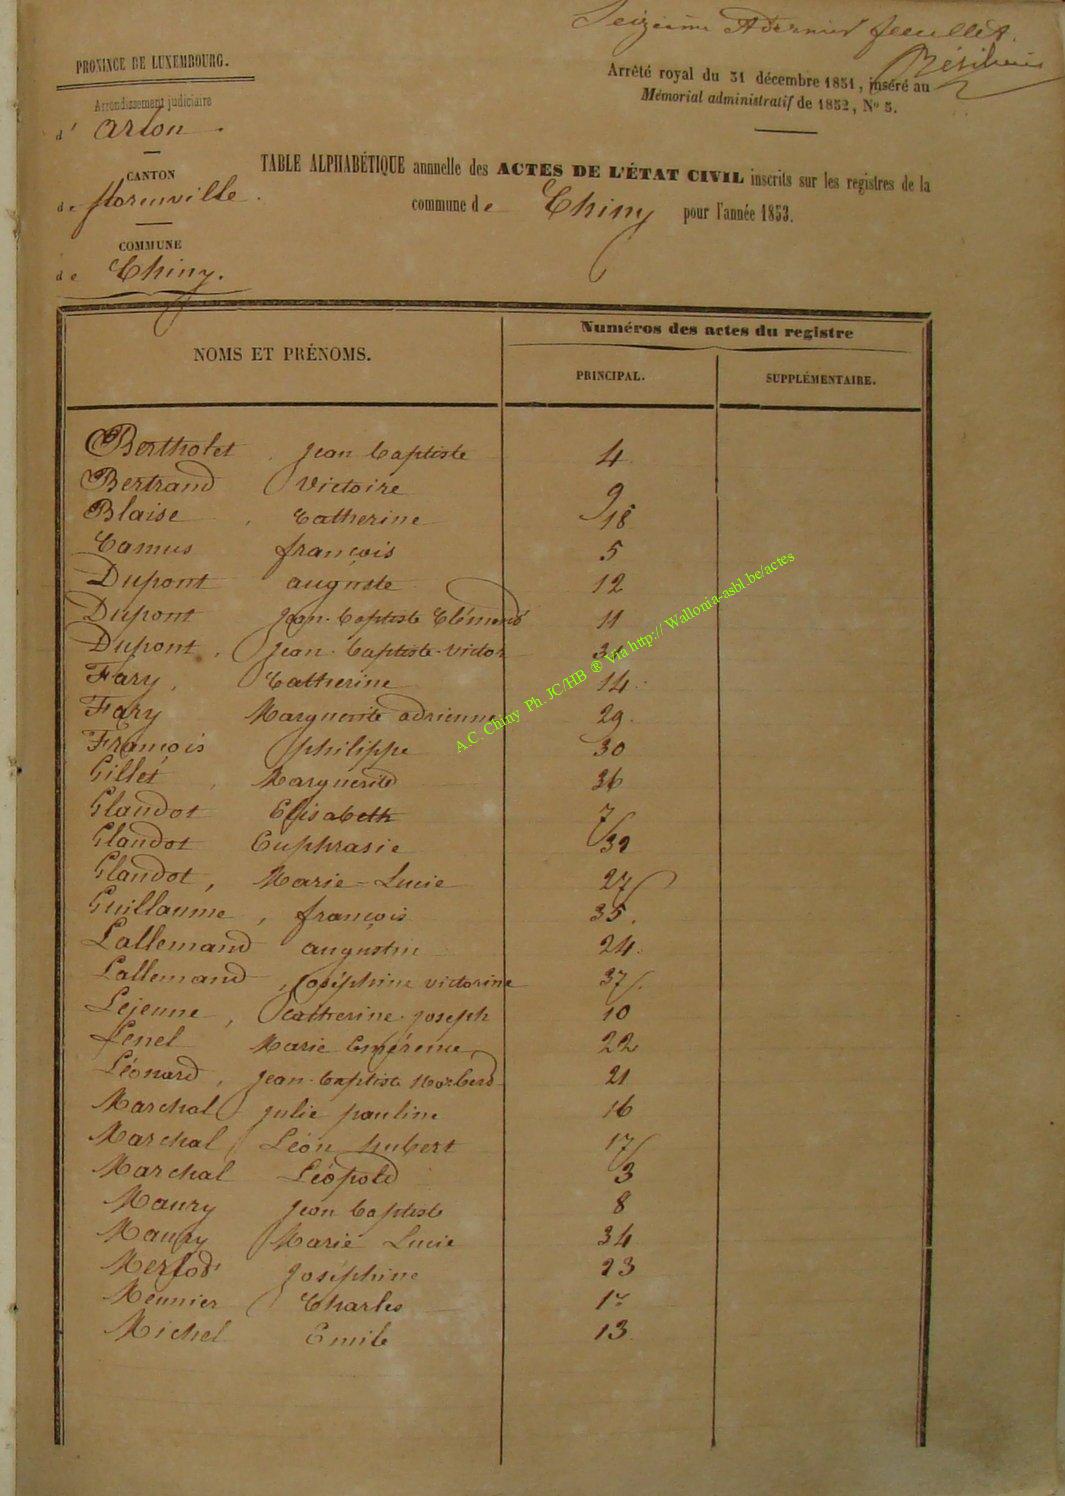 Seizième & dernier feuillet.
PROVINCE DE LUXEMBOURG.
Arrêté royal du 31 décembre 1851, inséré au
Mémorial administratif de 1852, No 5.
Arrondissement judiciaire
d' Arlon.
CANTON
de florenville.
COMMUNE
de Chiny.
TABLE ALPHABÉTIQUE annuelle des ACTES DE L'ÉTAT CIVIL inscrits sur les registres de la
commune de Chiny pour l'année 1853.
NOMS ET PRÉNOMS.
Numéros des actes du registre
PRINCIPAL.
SUPPLÉMENTAIRE.
Bertholet, Jean baptiste 4
Bertrand Victoire 9
Blaise, Catherine 18
Camus françois 5
Dupont auguste 12
Dupont Jean-baptiste Clément 11
Dupont, Jean-baptiste-victor
Fary, Catherine 14.
Fary Marguerite adrienne 29.
François philippe 30
Gillet, Marguerite 36
Glaudot Elisabeth 7
Glaudot Euphrasie 32
Glaudot, Marie-Lucie 27
Guillaume, françois 35.
Lallemand augustin 24.
Lallemand, Joséphine victorine 37.
Lejeune, Catherine-joseph 10
Lenel Marie Emérence 22
Léonard, Jean-baptiste Norbert 21
Marchal julie pauline 16
Marchal Léon hubert 17
Marchal Léopold 3
Maury Jean baptiste 8
Maury Marie Lucie 34
Merlot Joséphine 23
Meunier Charles 1er
Michel Emile 13
A.C. Chiny Ph. JC/HB ® Via http:// Wallonia-asbl.be/actes